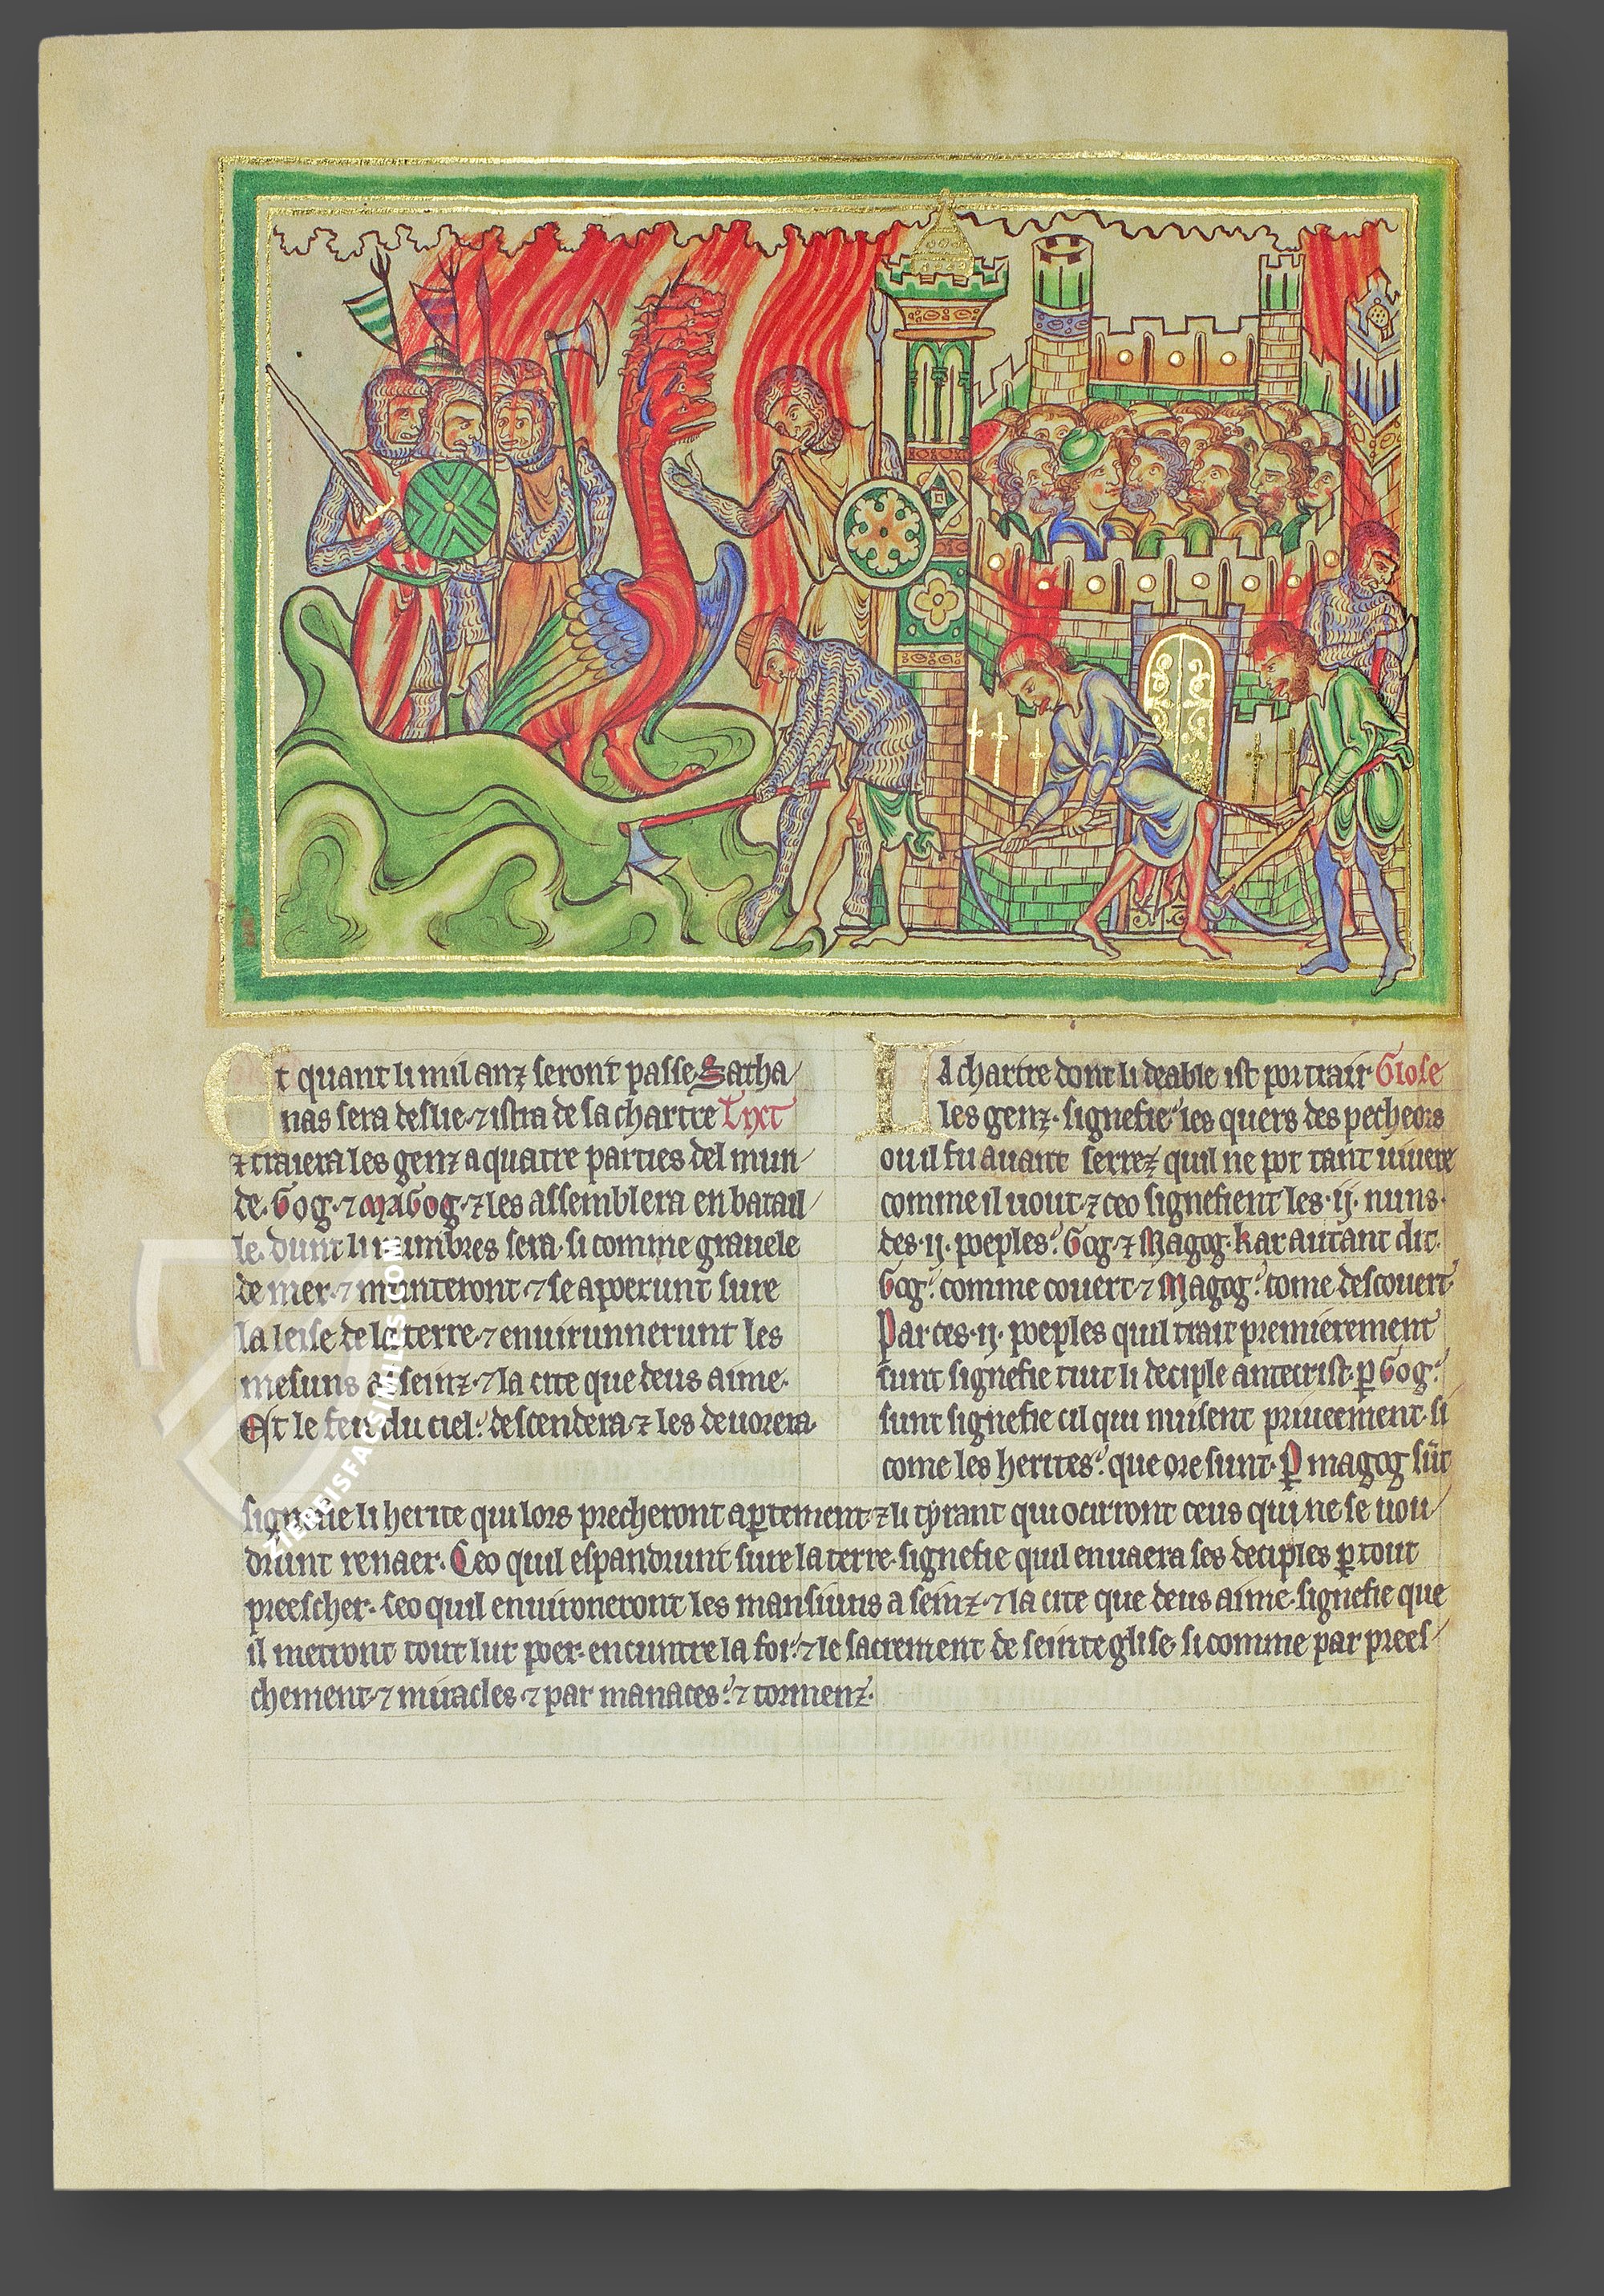 Et quant li mil anz seront passe Satha
nas sera deslie ⁊ istra de sa chartre Tixt
⁊ traiera les genz a quatre parties del mun
de. Gog ⁊ MaGog ⁊ les assemblera en batail
le. dunt li numbres sera si comme grauele
de mer ⁊ munteront ⁊ se apperunt sure
la leise de la terre ⁊ enuirunnerunt les
mesuns a seinz ⁊ la cite que deus aime.
Est le feu du ciel descendera ⁊ les deuorera.
La chartre dont li deable ist por trair Glose
les genz. signefie les quers des pecheors
ou il fu auant serrez quil ne pot tant uiuere
comme il uout ⁊ ceo signefient les .ij. nuns.
des .ij. poeples. Gog ⁊ Magog. kar autant dit.
Gog. comme couert ⁊ Magog. come descouert
Par ces .ij. poeples quil trait premierement
sunt signefie tuit li deciple antecrist. ꝑ Gog.
sunt signefie cil qui nuisent priueement. si
come les herites. que ore sunt. ꝑ magog sūt
signefie li herite qui lors precheront aꝑtement ⁊ li tyrant qui ocirront ceus qui ne se uou
drunt renaer. Ceo quil espandrunt sure la terre. signefie quil enuaera ses deciples ꝑ tout
preescher. Ceo quil enuironeront les mansiuns a seinz ⁊ la cite que deus aime. signefie que
il mettront tout lur poer. encuntre la foi. ⁊ le sacrement de seinte glise si comme par prees
chement ⁊ miracles ⁊ par manaces. ⁊ tormenz.
ZIEREISFACSIMILES.COM